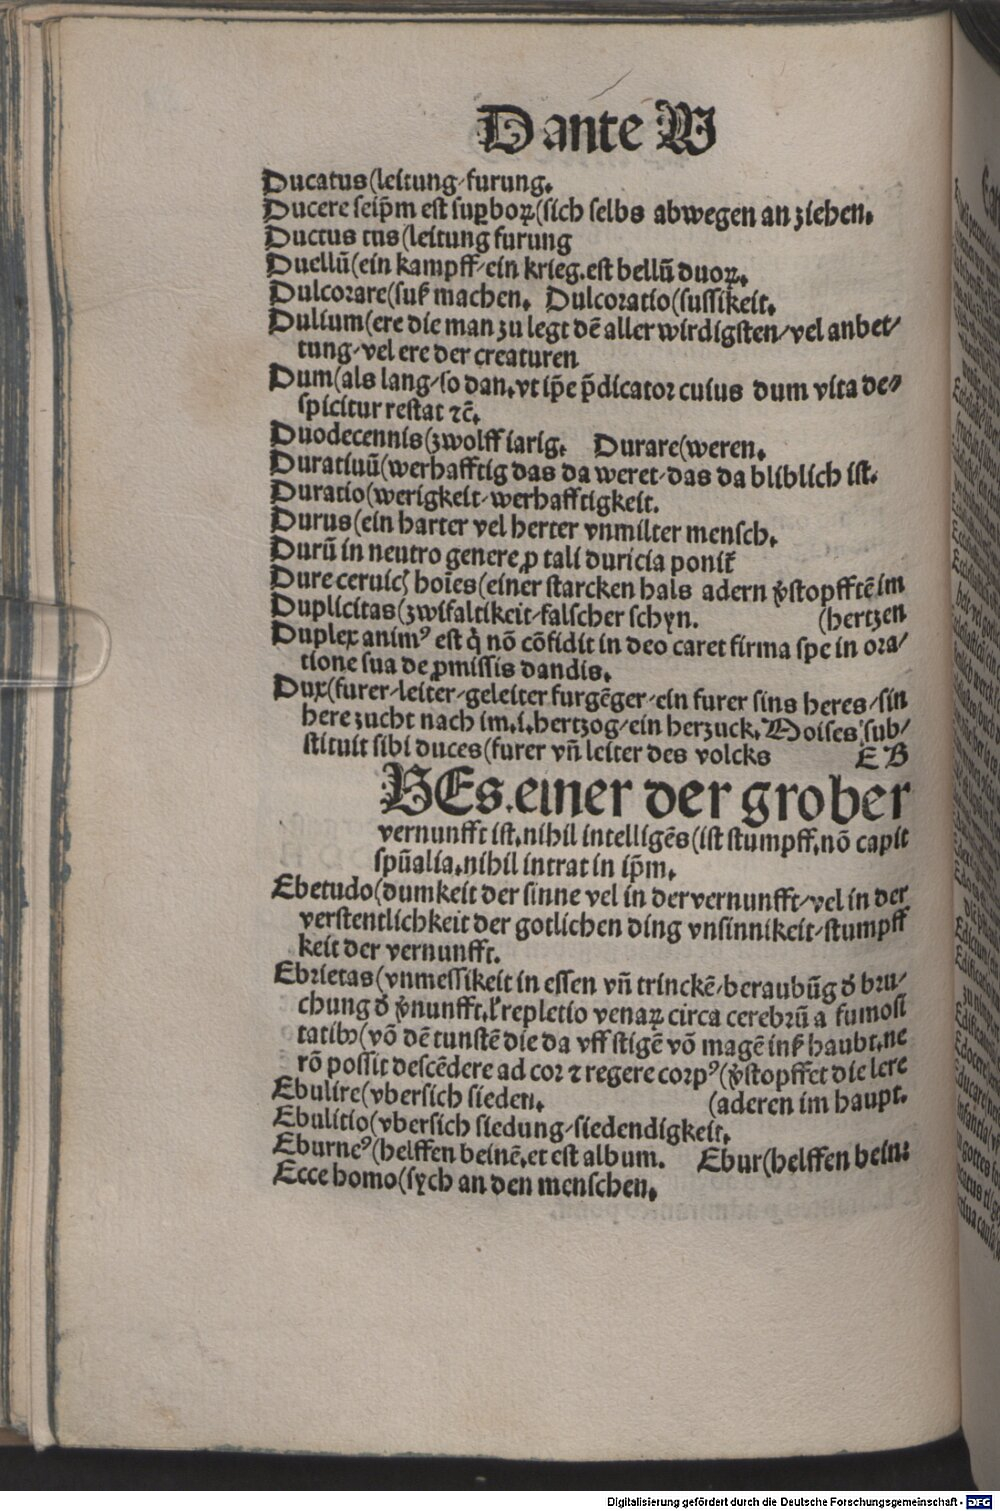 Dante W
Ducatus(leitung/furung.
Ducere seip̄m est sup̱boꝝ(sich selbs abwegen an ziehen.
Ductus tus(leitung furung
Duellū(ein kampff/ein krieg.est bellū duoꝝ.
Dulcorare(suß machen. Dulcoratio(sussikeit.
Dulium(ere die man zu legt dē aller wirdigsten/vel anbet/
tung/vel ere der creaturen
Dum(als lang/so dan.vt ip̄e p̄dicator cuius dum vita de/
spicitur restat ⁊c̄.
Duodecennis(zwolff iarig. Durare(weren.
Duratiuū(werhafftig das da weret/das da bliblich ist.
Duratio(werigkeit/werhafftigkeit.
Durus(ein harter vel herter vnmilter mensch.
Durū in neutro genere ꝓ tali duricia ponit᷑
Dure ceruicꝭ hoı̄es(einer starcken hals adern v̓stopfftē im
Duplicitas(zwifaltikeit/falscher schyn. (hertzen
Duplex animꝰ est q̇ nō cōfidit in deo caret firma spe in ora/
tione sua de ꝓmissis dandis.
Dux(furer/leiter/geleiter furgēger/ein furer sins heres/sin
here zucht nach im.i.hertzog/ein herzuck.Moises sub/
stituit sibi duces(furer vn̄ leiter des volcks E B
HEs.einer der grober
vernunfft ist.nihil intelligēs(ist stumpff.nō capit
spūalia.nihil intrat in ip̄m.
Ebetudo(dumkeit der sinne vel in der vernunfft/vel in der
verstentlichkeit der gotlichen ding vnsinnikeit/stumpff
keit der vernunfft.
Ebrietas(vnmessikeit in essen vn̄ trinckē/beraubūg d̓ bru/
chung d̓ v̓nunfft.ł repletio venaꝝ circa cerebrū a fumosi
tatibꝰ(vō dē tunstē die da vff stigē vō magē inß haubt.ne
rō possit descēdere ad cor ⁊ regere corpꝰ(v̓stopffet die lere
Ebulire(vbersich sieden. (aderen im haupt.
Ebulitio(vbersich siedung/siedendigkeit.
Eburneꝰ(helffen beinē.et est album. Ebur(helffen bein:
Ecce homo(sych an den menschen.
Digitalisierung gefördert durch die Deutsche Forschungsgemeinschaft - DFG